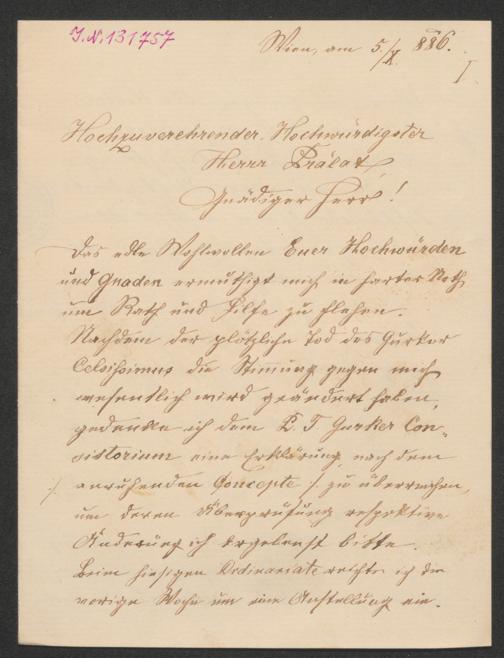 J.N. 131757
Wien, am 5./X. 886.
I
Hochzuverehrender, Hochwürdigster
Herr Prälat,
Gnädiger Herr!
Das edle Wohlwollen Euer Hochwürden
und Gnaden ermuthigt mich in harter Noth
um Rath und Hilfe zu flehen.
Nachdem der plötzliche Tod des Gurker
Celsissimus die Stimung gegen mich
wesentlich wird geändert haben,
gedenke ich dem P. T. Gurker Con-
sistorium eine Erklärung nach dem
anruhenden Concepte /: zu überreichen,
um deren Überprüfung respektive
Änderung ich ergebenst bitte.
Beim hiesigen Ordinariate reichte ich die
vorige Woche um eine Anstellung ein.